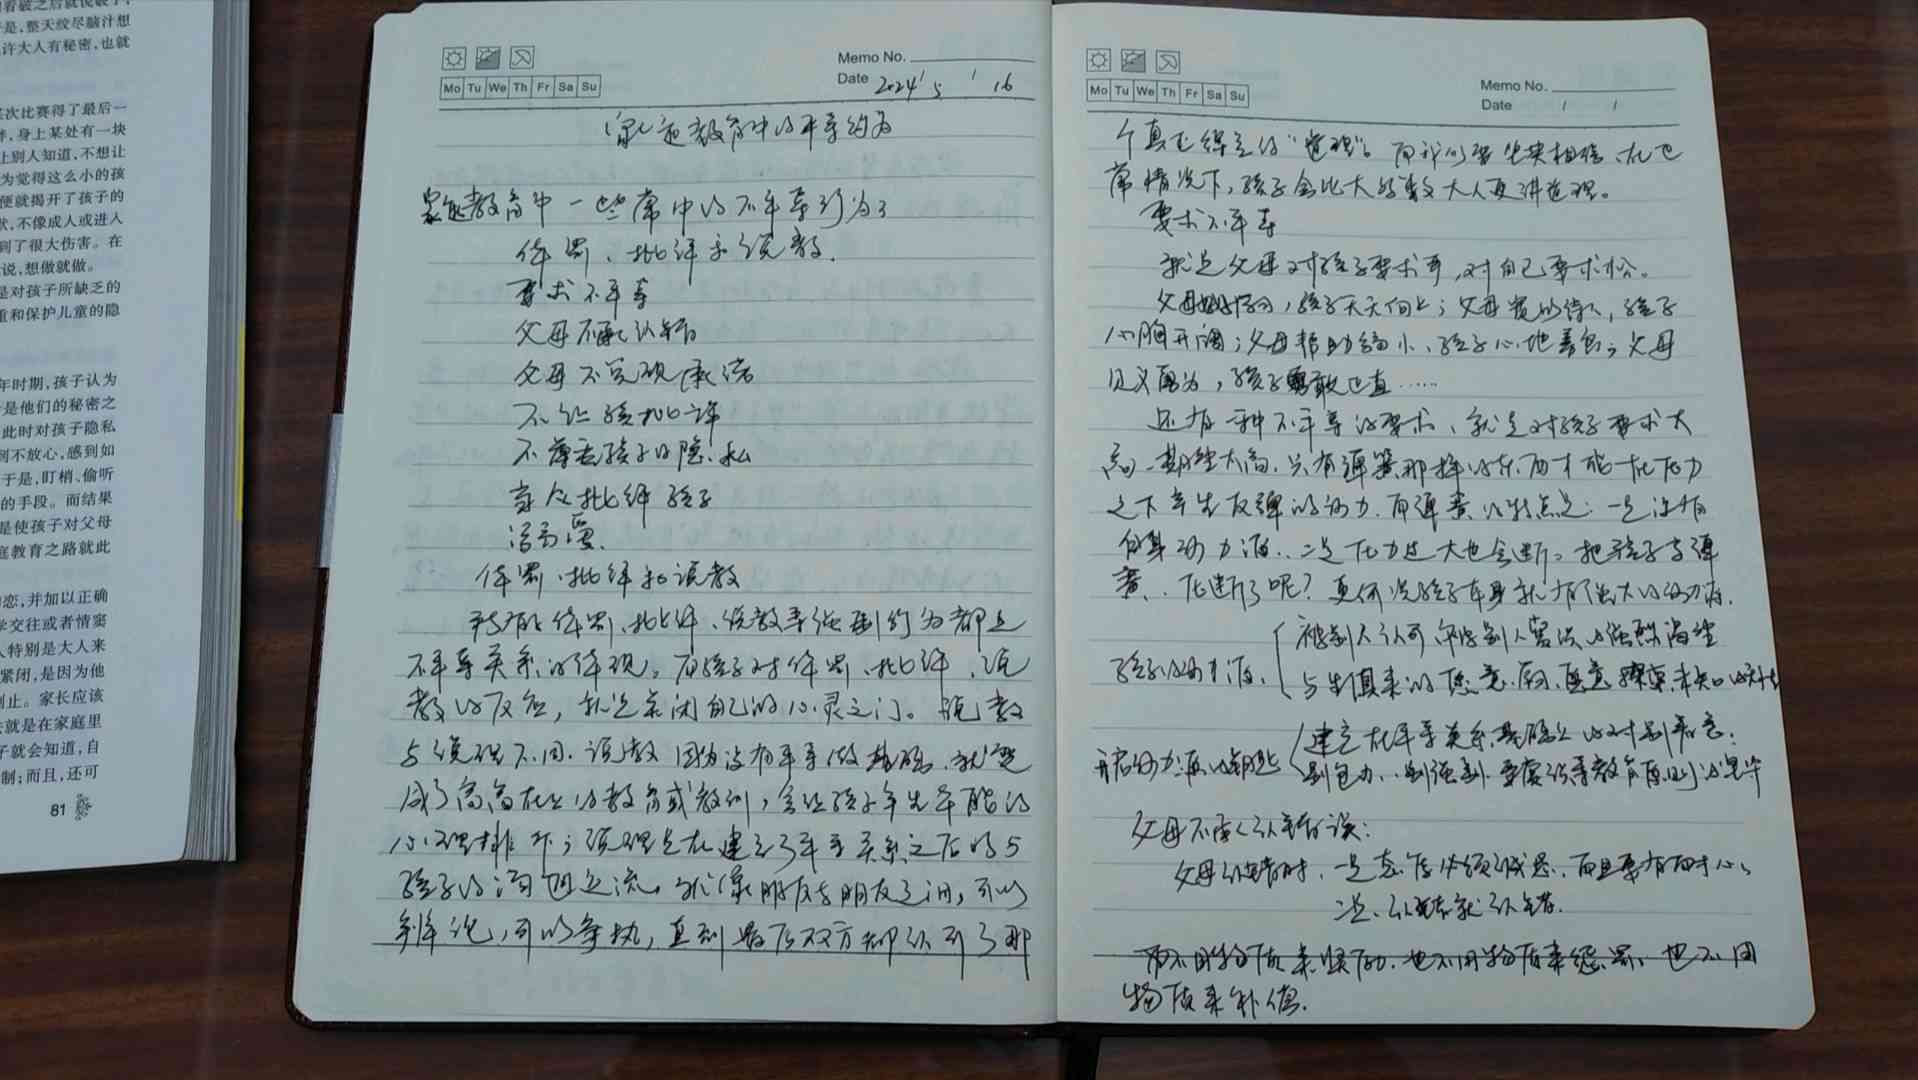 看破之后就说破了,
是,整天绞尽脑汁想
许大人有秘密,也就
某次比赛得了最后一
身上某处有一块
上别人知道,不想让
为觉得这么小的孩
便就揭开了孩子的
不像成人或进入
到了很大伤害。在
说,想做就做。
是对孩子所缺乏的
重和保护儿童的隐
年时期,孩子认为
是他们的秘密之
此时对孩子隐私
到不放心,感到如
于是,盯梢、偷听
的手段。而结果
是使孩子对父母
庭教育之路就此
恋,并加以正确
学交往或者情窦
人特别是大人来
紧闭,是因为他
制止。家长应该
就是在家庭里
子就会知道,自
制;而且,还可
81
Memo No.
Date 2024 5 16
Mo Tu We Th Fr Sa Su
家庭教育中的平等行为
家庭教育中一些常中的不平等行为:
体罚、批评和说教.
要求不平等
父母不承认错
父母不兑现承诺
不让孩批评
不尊重孩子的隐私
当众批评孩子
体罚、批评和说教
所有体罚、批评、说教等强制行为都是
不平等关系的体现。而孩子对体罚、批评、说
教的反应,就是关闭自己的心灵之门。说教
与说理不同.说教因为没有平等做基础.就变
成了高高在上的教育或教训,会让孩子产生本能的
心理排斥;说理是在建立了平等关系之后的与
孩子的沟通交流。就像朋友与朋友之间,可以
辩论,可以争执,直到最后双方都认可了那
Memo No.
Date
Mo Tu We Th Fr Sa Su
个真正绎立的“道理”。而我们要坚实相信,在正
常情况下,孩子会比大多数大人更讲道理。
要求不平等
就是父母对孩子要求严,对自己要求松。
父母好学习,孩子天天向上;父母宽以待人,孩子
心胸开阔;父母帮助弱小,孩子心地善良;父母
见义勇为,孩子勇敢正直……
还有一种不平等的要求,就是对孩子要求太
高、期望太高.只有弹簧那样的东西才能在压力
之下产生反弹的动力.而弹簧的特点是:一是没有
自身动力源..二是压力过大也会断。把孩子当弹
簧..压断了呢?更何况孩子本身就有强大的动力源.
孩子的动力源.
被别人认可、得到人赏识的强烈渴望
与生俱来的愿意、探索未知的
开启动力源的钥匙
建立在平等关系基础上的
父母不承认错误:
父母认错时,一是态度必须诚恳.而且要有耐心,
二是、认错就认错.
而不用物质来奖励.也不用物质来惩罚,也不用
物质来补偿.